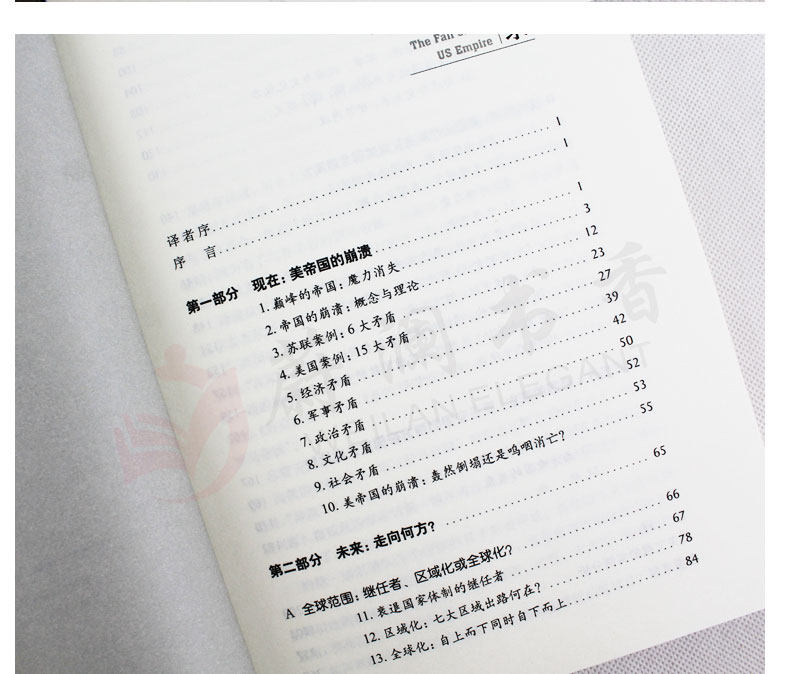 The Fall
US Empire
译者序 1
序 言 1
第一部分 现在：美帝国的崩溃 1
1. 巅峰的帝国：魔力消失 3
2. 帝国的崩溃：概念与理论 12
3. 苏联案例：6 大矛盾 23
4. 美国案例：15 大矛盾 27
5. 经济矛盾 39
6. 军事矛盾 42
7. 政治矛盾 50
8. 文化矛盾 52
9. 社会矛盾 53
10. 美帝国的崩溃：轰然倒塌还是呜咽消亡？ 55
第二部分 未来：走向何方？ 65
A 全球范围：继任者、区域化或全球化？ 66
11. 衰退国家体制的继任者 67
12. 区域化：七大区域出路何在？ 78
13. 全球化：自上而下同时自下而上 84
蔚澜书香
WEILAN ELEGANT